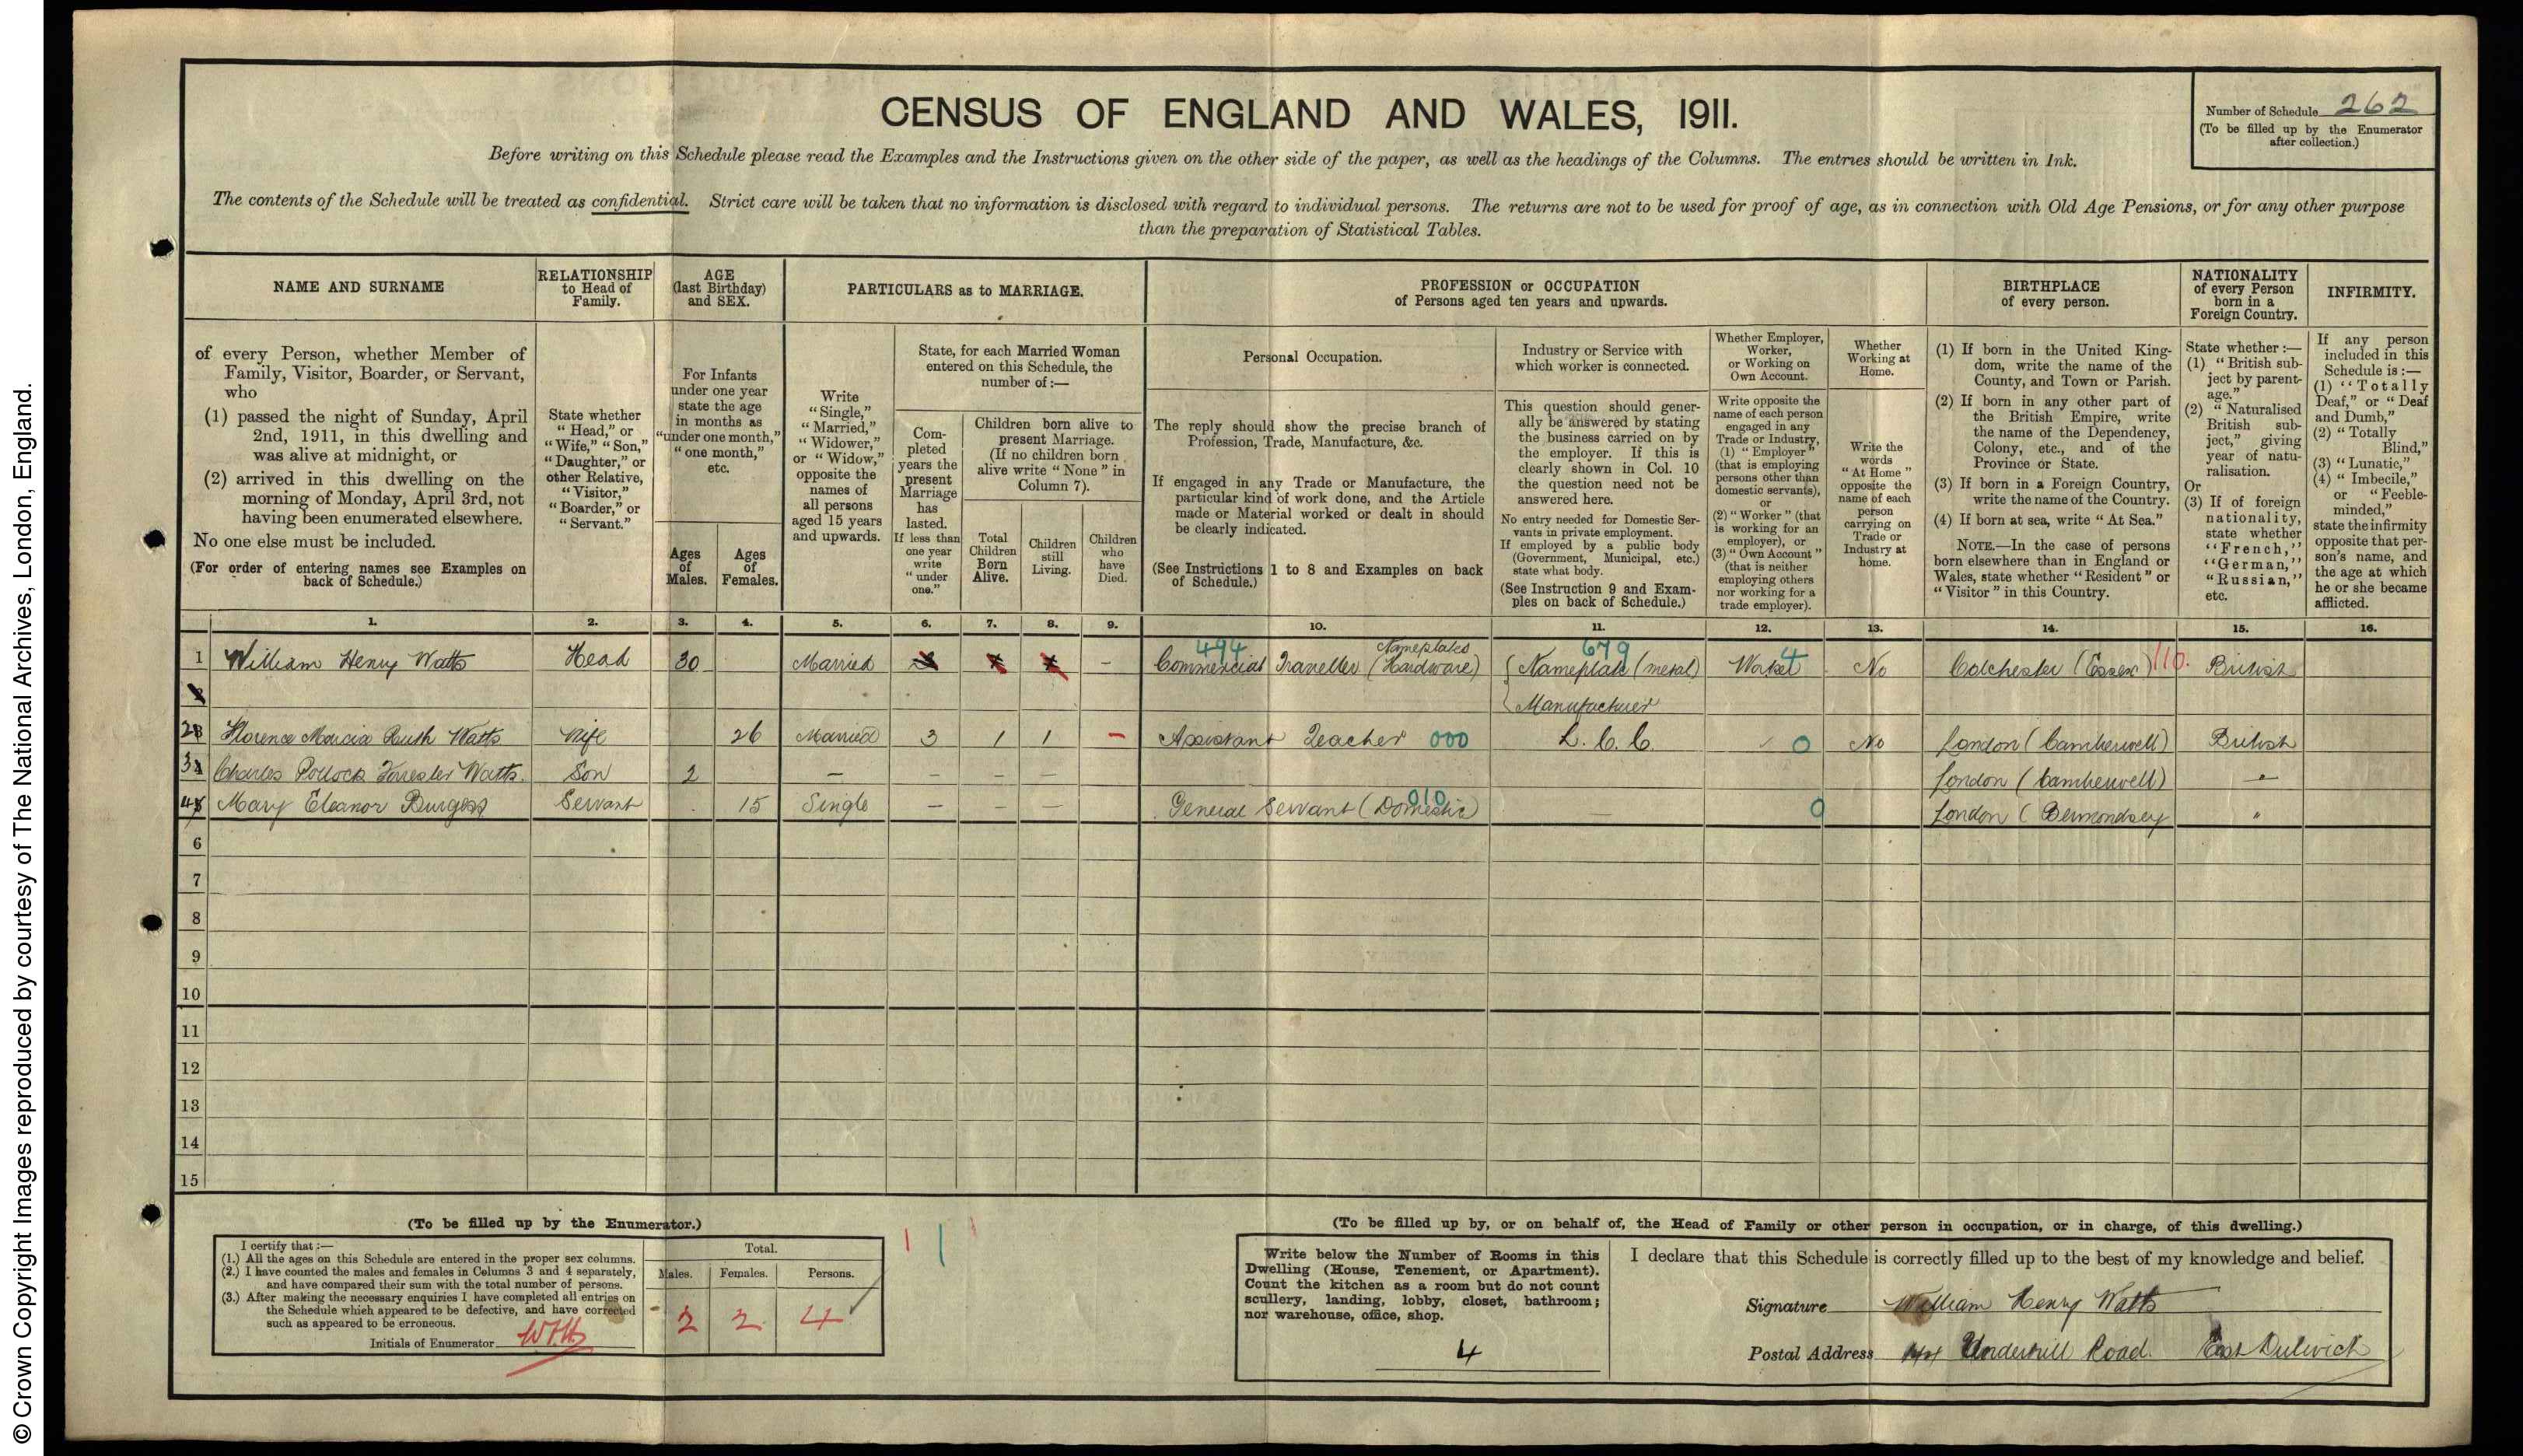 © Crown Copyright Images reproduced by courtesy of The National Archives, London, England.
CENSUS OF ENGLAND AND WALES, 1911.
Number of Schedule 262
(To be filled up by the Enumerator
after collection.)
Before writing on this Schedule please read the Examples and the Instructions given on the other side of the paper, as well as the headings of the Columns. The entries should be written in Ink.
The contents of the Schedule will be treated as confidential. Strict care will be taken that no information is disclosed with regard to individual persons. The returns are not to be used for proof of age, as in connection with Old Age Pensions, or for any other purpose
than the preparation of Statistical Tables.
NAME AND SURNAME
of every Person, whether Member of
Family, Visitor, Boarder, or Servant,
who
(1) passed the night of Sunday, April
2nd, 1911, in this dwelling and
was alive at midnight, or
(2) arrived in this dwelling on the
morning of Monday, April 3rd, not
having been enumerated elsewhere.
No one else must be included.
(For order of entering names see Examples on
back of Schedule.)
RELATIONSHIP
to Head of
Family.
State whether
"Head," or
"Wife," "Son,"
"Daughter," or
other Relative,
"Visitor,"
"Boarder," or
"Servant."
AGE
(last Birthday)
and SEX.
For Infants
under one year
state the age
in months as
"under one month,"
"one month,"
etc.
Ages
of
Males.
Ages
of
Females.
PARTICULARS as to MARRIAGE.
Write
"Single,"
"Married,"
"Widower,"
or "Widow,"
opposite the
names of
all persons
aged 15 years
and upwards.
State, for each Married Woman
entered on this Schedule, the
number of :—
Com-
pleted
years the
present
Marriage
has
lasted.
If less than
one year
write
"under
one."
Children born alive to
present Marriage.
(If no children born
alive write "None" in
Column 7).
Total
Children
Born
Alive.
Children
still
Living.
Children
who
have
Died.
PROFESSION or OCCUPATION
of Persons aged ten years and upwards.
Personal Occupation.
The reply should show the precise branch of
Profession, Trade, Manufacture, &c.
If engaged in any Trade or Manufacture, the
particular kind of work done, and the Article
made or Material worked or dealt in should
be clearly indicated.
(See Instructions 1 to 8 and Examples on back
of Schedule.)
Industry or Service with
which worker is connected.
This question should gener-
ally be answered by stating
the business carried on by
the employer. If this is
clearly shown in Col. 10
the question need not be
answered here.
No entry needed for Domestic Ser-
vants in private employment.
If employed by a public body
(Government, Municipal, etc.)
state what body.
(See Instruction 9 and Exam-
ples on back of Schedule.)
Whether Employer,
Worker,
or Working on
Own Account.
Write opposite the
name of each person
engaged in any
Trade or Industry,
(1) "Employer"
(that is employing
persons other than
domestic servants),
or
(2) "Worker" (that
is working for an
employer), or
(3) "Own Account"
(that is neither
employing others
nor working for a
trade employer).
Whether
Working at
Home.
Write the
words
"At Home"
opposite the
name of each
person
carrying on
Trade or
Industry at
home.
BIRTHPLACE
of every person.
(1) If born in the United King-
dom, write the name of the
County, and Town or Parish.
(2) If born in any other part of
the British Empire, write
the name of the Dependency,
Colony, etc., and of the
Province or State.
(3) If born in a Foreign Country,
write the name of the Country.
(4) If born at sea, write "At Sea."
NOTE.—In the case of persons
born elsewhere than in England or
Wales, state whether "Resident" or
"Visitor" in this Country.
NATIONALITY
of every Person
born in a
Foreign Country.
State whether :—
(1) "British sub-
ject by parent-
age."
(2) "Naturalised
British sub-
ject," giving
year of natu-
ralisation.
Or
(3) If of foreign
nationality,
state whether
"French,"
"German,"
"Russian,"
etc.
INFIRMITY.
If any person
included in this
Schedule is :—
(1) "Totally
Deaf," or "Deaf
and Dumb,"
(2) "Totally
Blind,"
(3) "Lunatic,"
(4) "Imbecile,"
or "Feeble-
minded,"
state the infirmity
opposite that per-
son's name, and
the age at which
he or she became
afflicted.
1. 2. 3. 4. 5. 6. 7. 8. 9. 10. 11. 12. 13. 14. 15. 16.
494 Nameplates 679
1 William Henry Watts Head 30 Married – Commercial Traveller (Hardware) Nameplate (metal) Worker 4 No Colchester (Essex) 110. British
Manufacturer
2 Florence Marcia Ruth Watts Wife 26 Married 3 1 1 – Assistant Teacher 000 L.C.C. 0 No London (Camberwell) British
3 Charles Pollock Forrester Watts. Son 2 – – – – London (Camberwell) "
4 Mary Eleanor Burgess Servant 15 Single – – – General Servant (Domestic) 010 — 0 London (Bermondsey "
6
7
8
9
10
11
12
13
14
15
(To be filled up by the Enumerator.)
I certify that :—
(1.) All the ages on this Schedule are entered in the proper sex columns.
(2.) I have counted the males and females in Columns 3 and 4 separately,
and have compared their sum with the total number of persons.
(3.) After making the necessary enquiries I have completed all entries on
the Schedule which appeared to be defective, and have corrected
such as appeared to be erroneous.
Initials of Enumerator
Total.
Males. Females. Persons.
2 2 4
(To be filled up by, or on behalf of, the Head of Family or other person in occupation, or in charge, of this dwelling.)
Write below the Number of Rooms in this
Dwelling (House, Tenement, or Apartment).
Count the kitchen as a room but do not count
scullery, landing, lobby, closet, bathroom;
nor warehouse, office, shop.
4
I declare that this Schedule is correctly filled up to the best of my knowledge and belief.
Signature William Henry Watts
Postal Address Underhill Road. East Dulwich